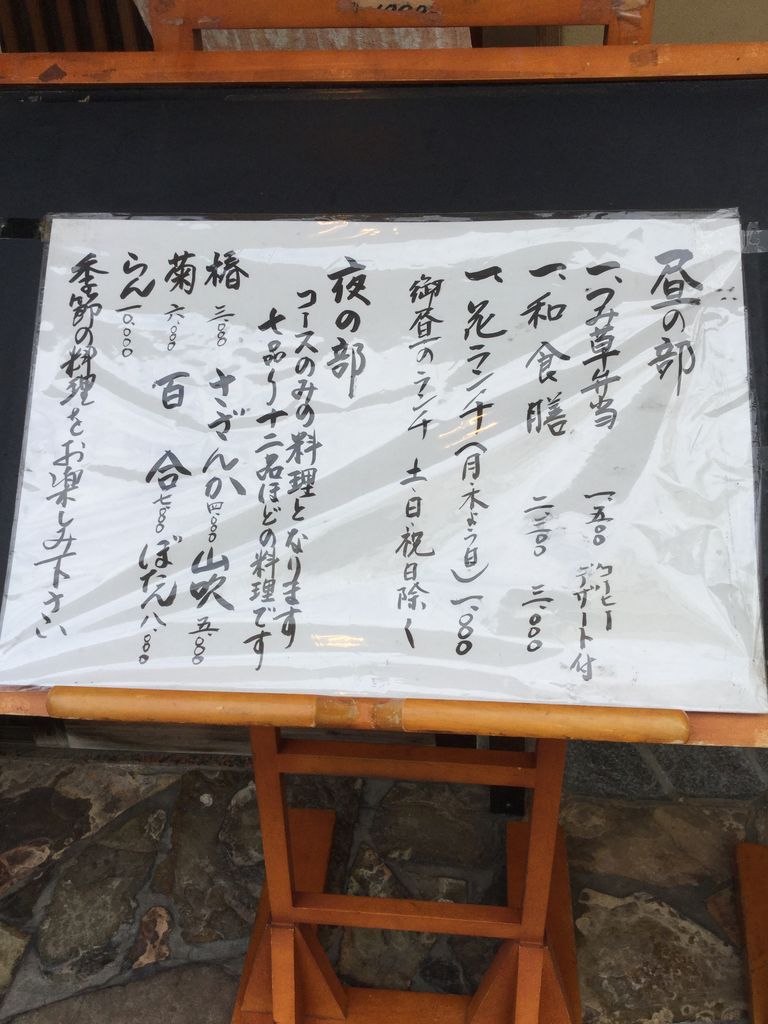 昼の部
一、つみ草弁当 一、五〇〇 コーヒー デザート付
一、和食膳 二、二〇〇 三、〇〇〇
一、花ランチ(月・木よう日) 一、〇〇〇
御昼のランチ 土、日、祝日除く
夜の部
コースのみの料理となります
七品〜十二品ほどの料理です
椿 三、〇〇〇 さざんか 四、〇〇〇 山吹 五、〇〇〇
菊 六、〇〇〇 百合 七、〇〇〇 ぼたん 八、〇〇〇
らん 一〇、〇〇〇
季節の料理をお楽しみ下さい